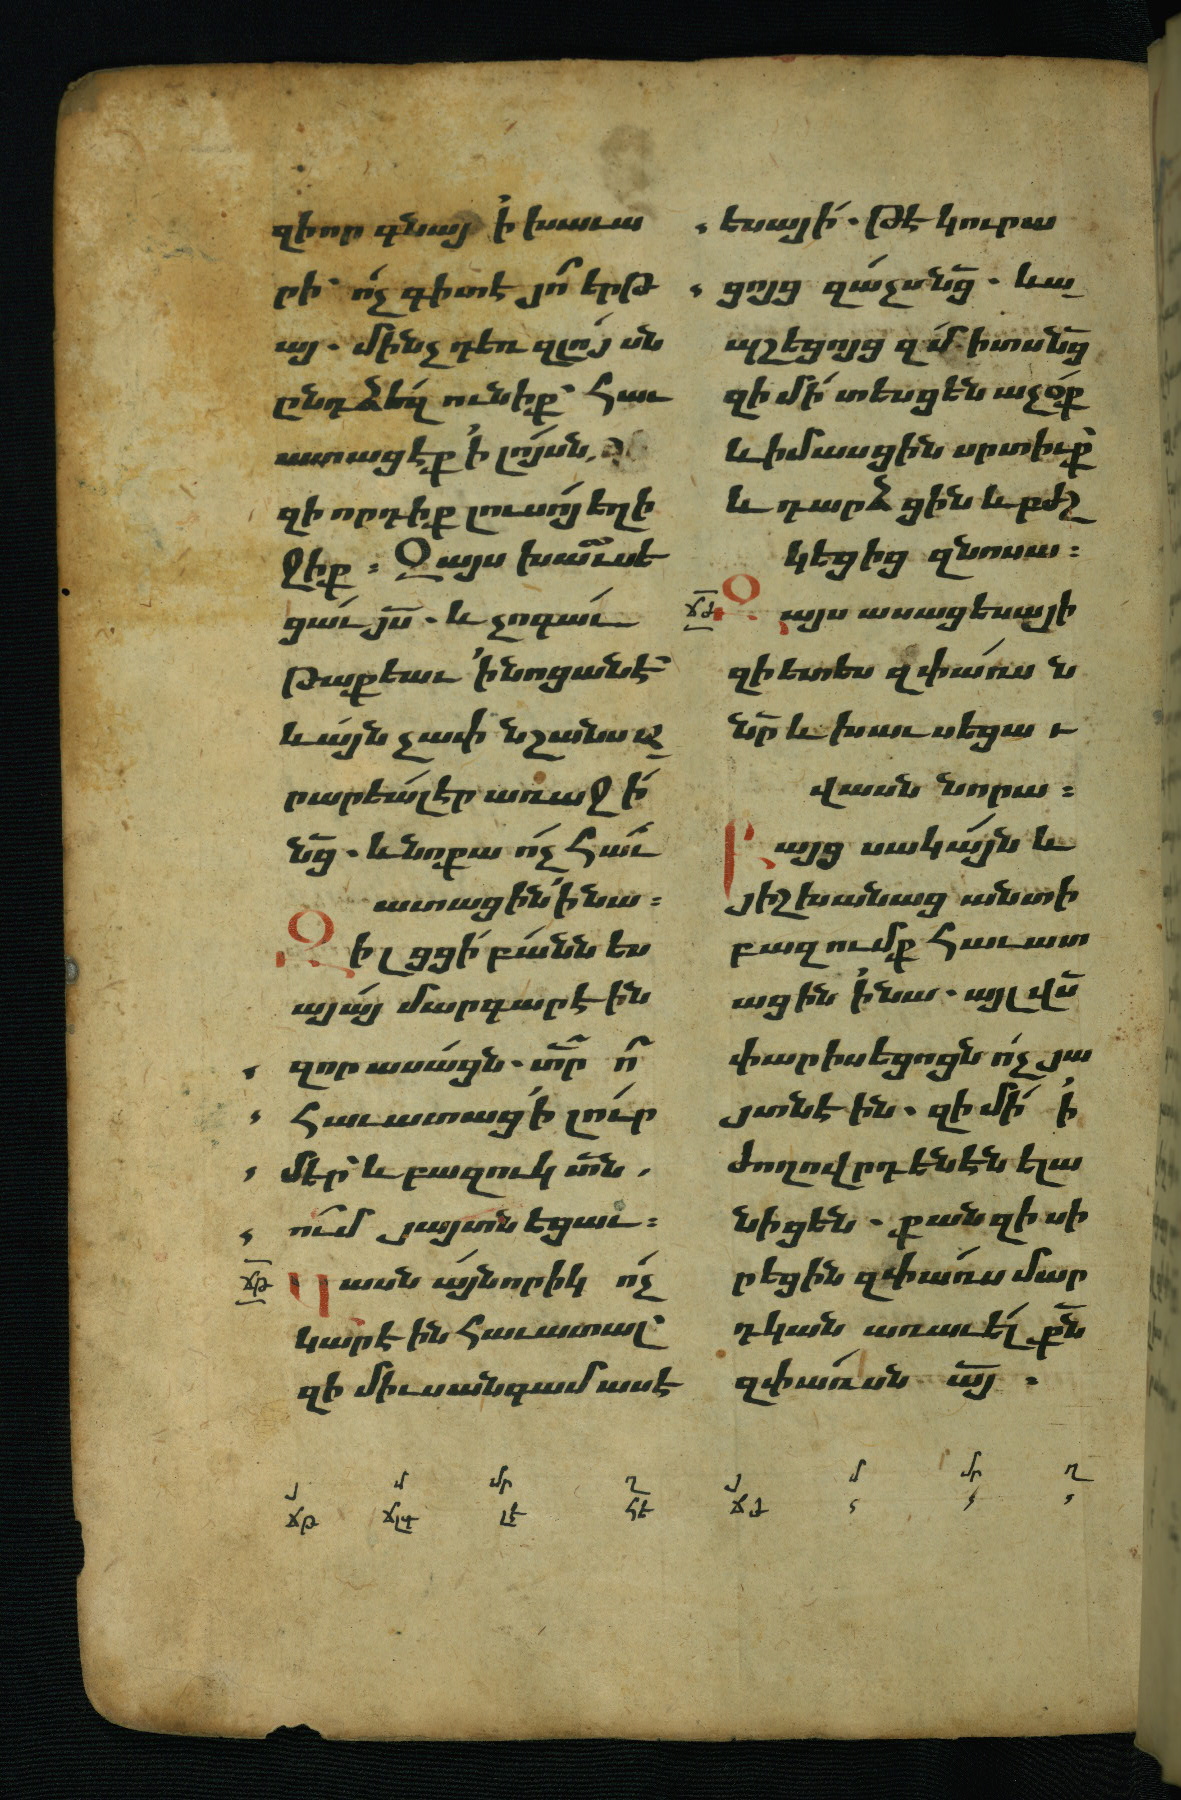 զի որ գնայ ի խաւա
րի՝ ո՛չ գիտէ յո՞ երթ
այ . մինչդեռ զլո՛յսն
ընդ ձեզ ունիք՝ հաւ
ատացէք ի լո՛յսն,
զի որդիք լուսո՛յ եղի
ջիք : Զայս խաւսե
ցաւ յս̅ . և չոգաւ
թաքեաւ ի նոցանէ՝
և ա՛յնչափ նշանս ա
րարեա՛լ էր առաջի
նց̅ . և նոքա ո՛չ հաւ
ատացին ի նա :
Զի լցցի բա՛նն ես
այա՛յ մարգարէին
զոր ասա՛ցն . տր̅ ո՞
հաւատաց ի լուր
մեր՝ և բազուկ տն̅ ,
ո՛ւմ յայտնեցաւ :
ՃԹ Վասն ա՛յնորիկ ո՛չ
կարէին հաւատալ՝
զի միւսանգամ ասէ
եսայի . թէ կուրա
ցոյց զա՛չս նց̅ . և ա
պշեցոյց զմիտս նց̅
զի մի՛ տեսցեն աչօք
և իմասցին սրտիւք՝
և դարձցին և բժշ
կեցից զնոսա :
ՃԺ Զայս ասաց եսայի
զի ետես զփա՛ռսն
նր̅ և խաւսեցաւ
վասն նորա :
Բայց սակա՛յն և
յիշխանաց անտի
բազումք հաւատ
ացին ի նա . այլ վս̅
փարիսեցոցն ո՛չ յա
յտնէին . զի մի՛ ի
ժողովրդենէն ելա
նիցեն . քանզի սի
րեցին զփա՛ռս մար
դկան առաւել քն̅
զփա՛ռսն ա՛յ .
յ մ մր ղ յ մ մր ղ
ՃԹ ՃԼԳ ԼԷ ՀԷ ՃԺ